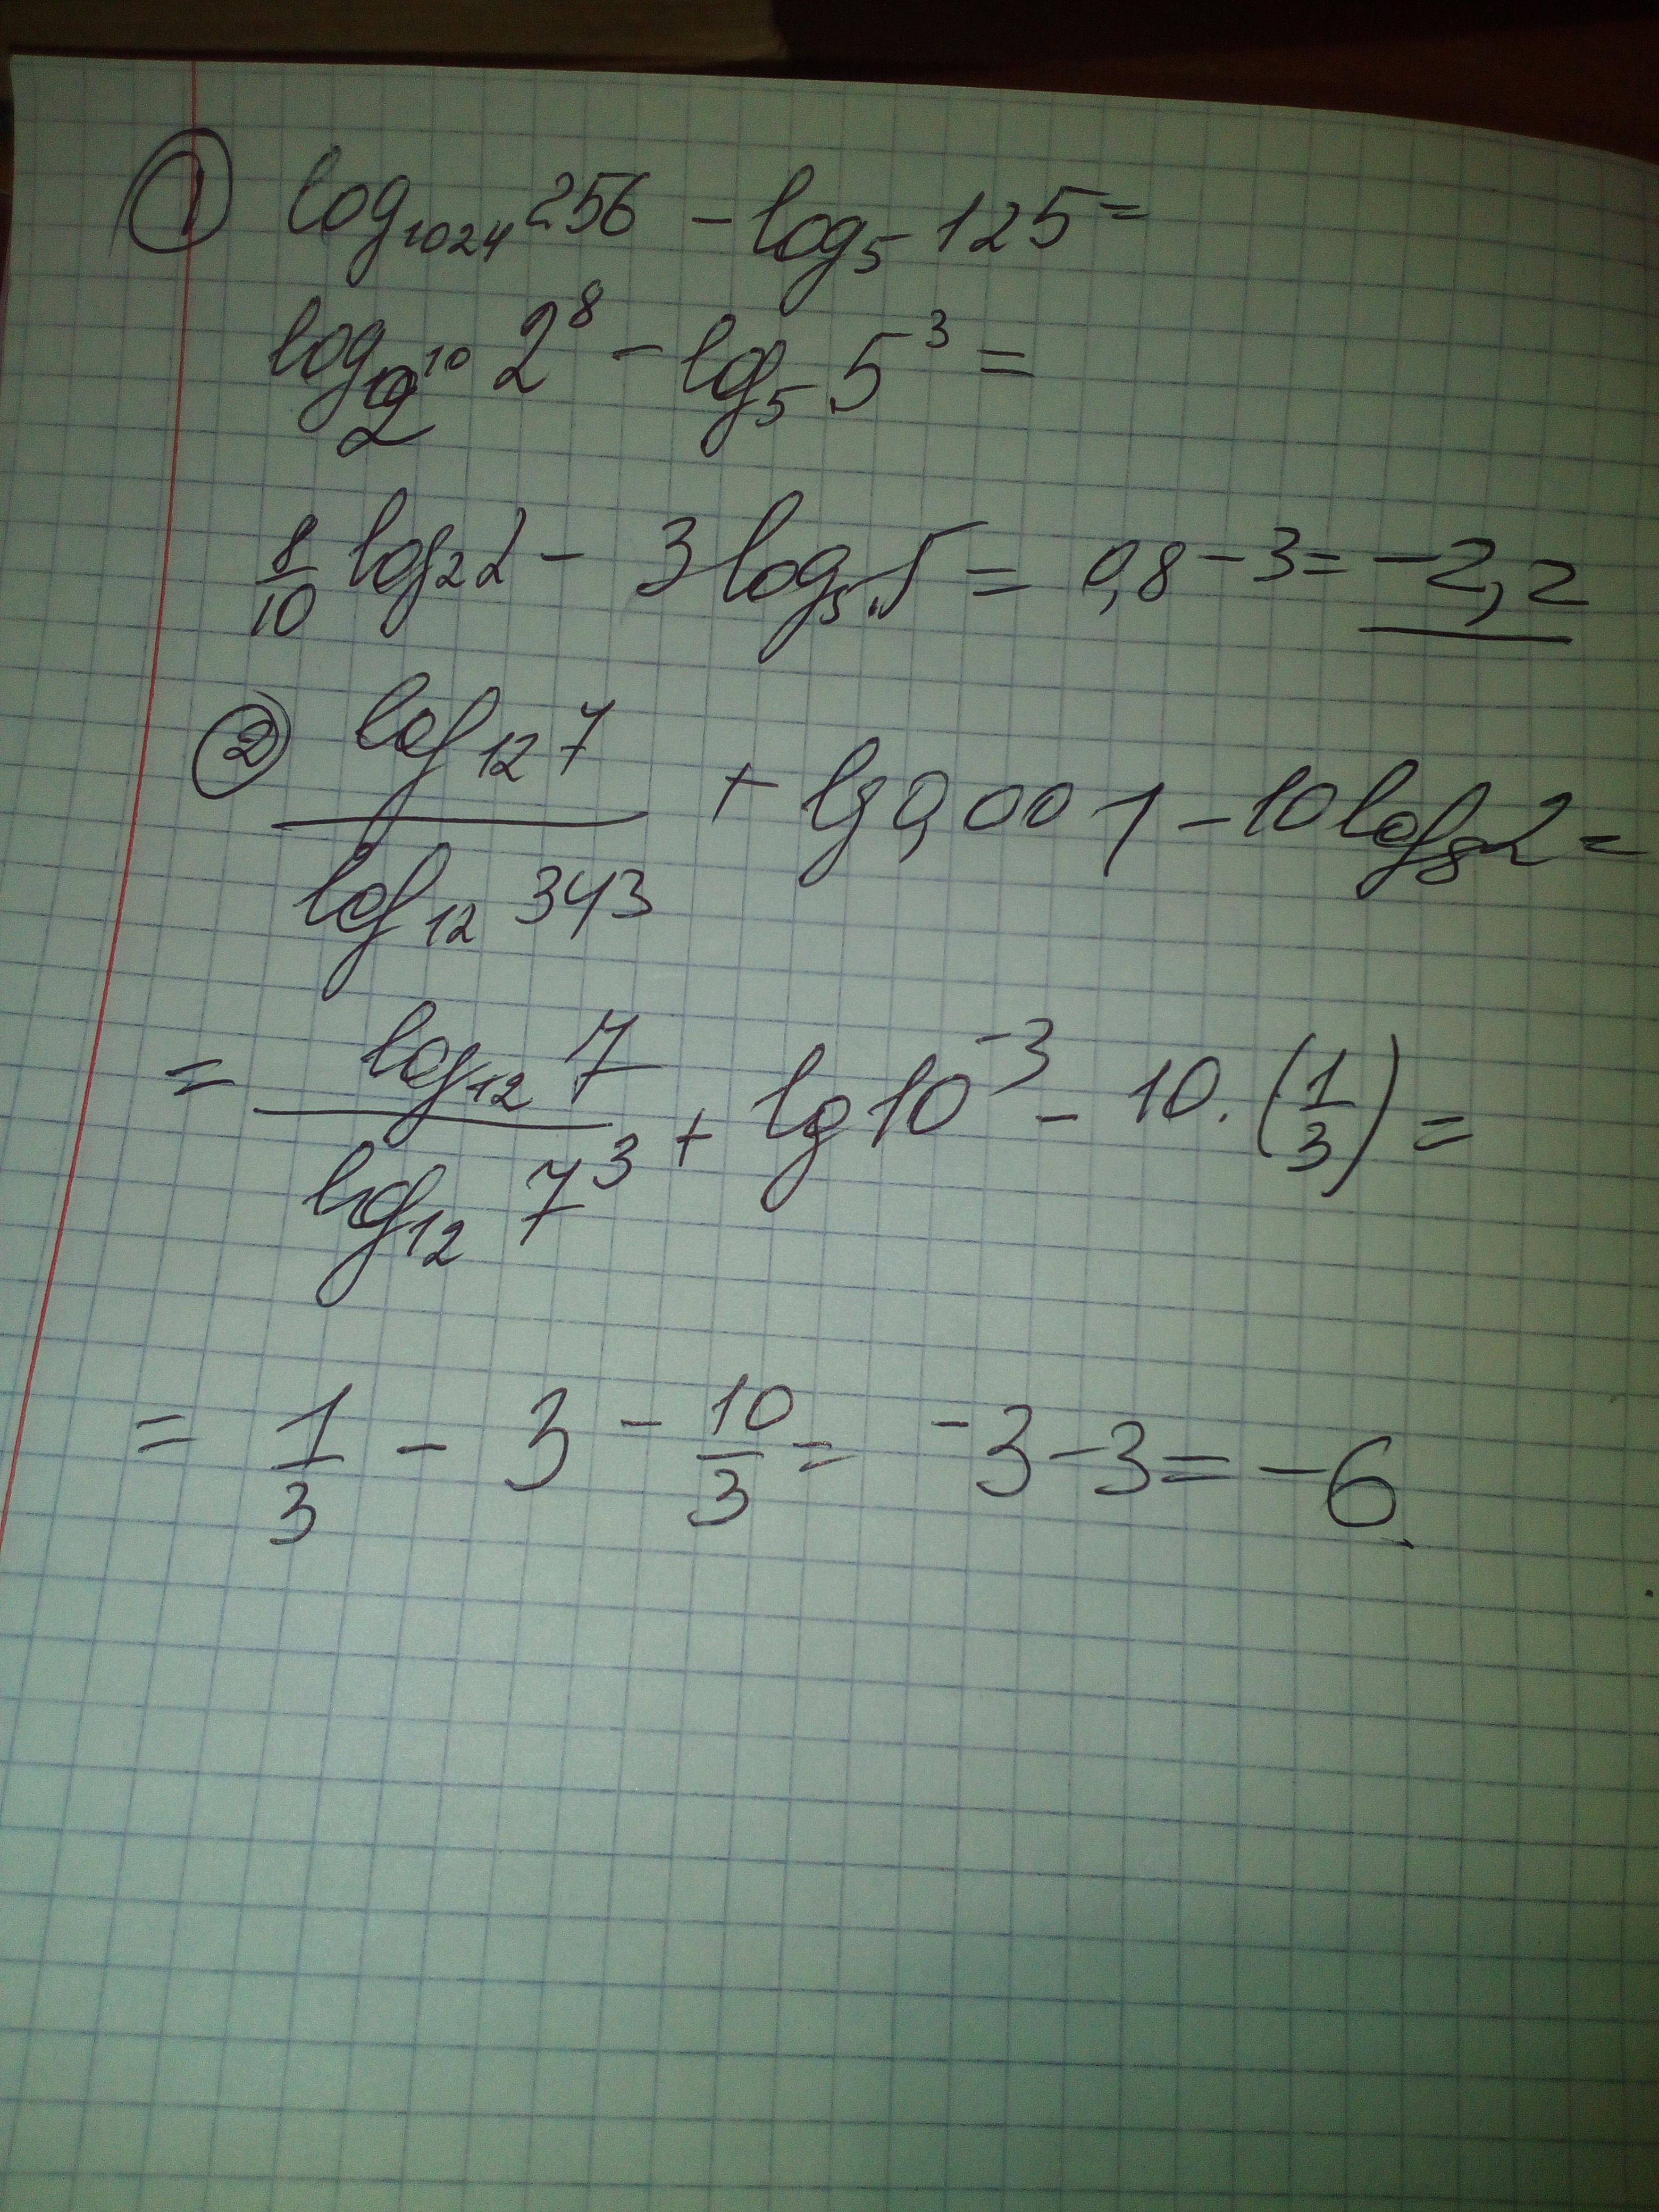 ① log₁₀₂₄ 256 - log₅ 125 =
log₂¹⁰ 2⁸ - lg₅ 5³ =
8/10 log₂ 2 - 3 log₅ 5 = 0,8 - 3 = -2,2
② log₁₂ 7 / log₁₂ 343 + lg 0,001 - 10 log₈ 2 =
= log₁₂ 7 / log₁₂ 7³ + lg 10⁻³ - 10 · (1/3) =
= 1/3 - 3 - 10/3 = -3 - 3 = -6.